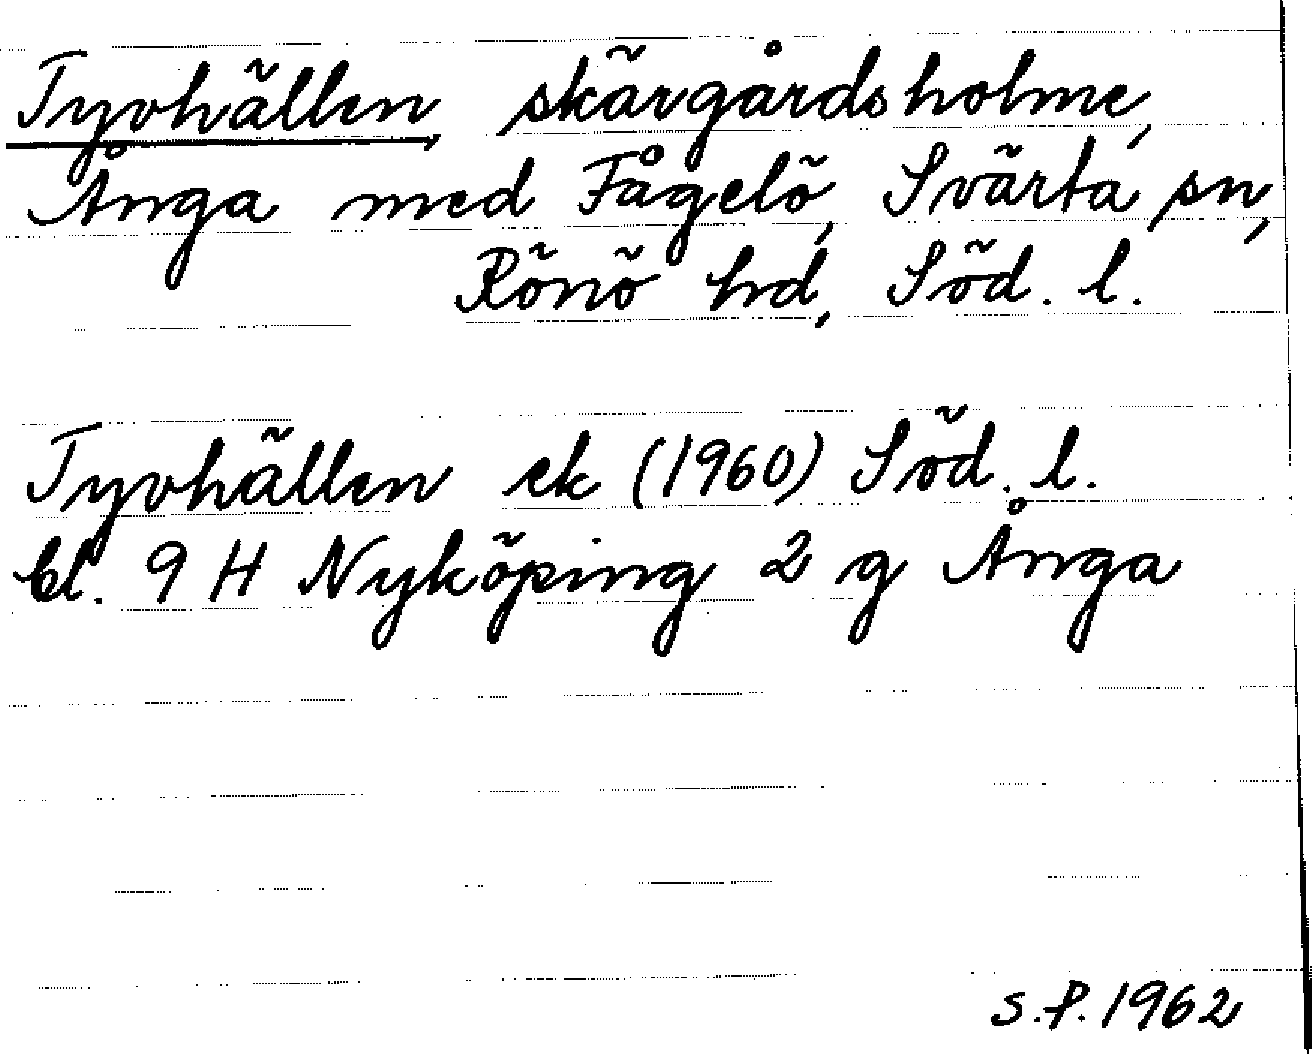 Tyvhällen, skärgårdsholme,
Ånga med Fågelö, Svärta sn,
Rönö hd, Söd. l.
Tyvhällen ek (1960) Söd. l.
bl. 9 H Nyköping 2 g Ånga
S.P. 1962